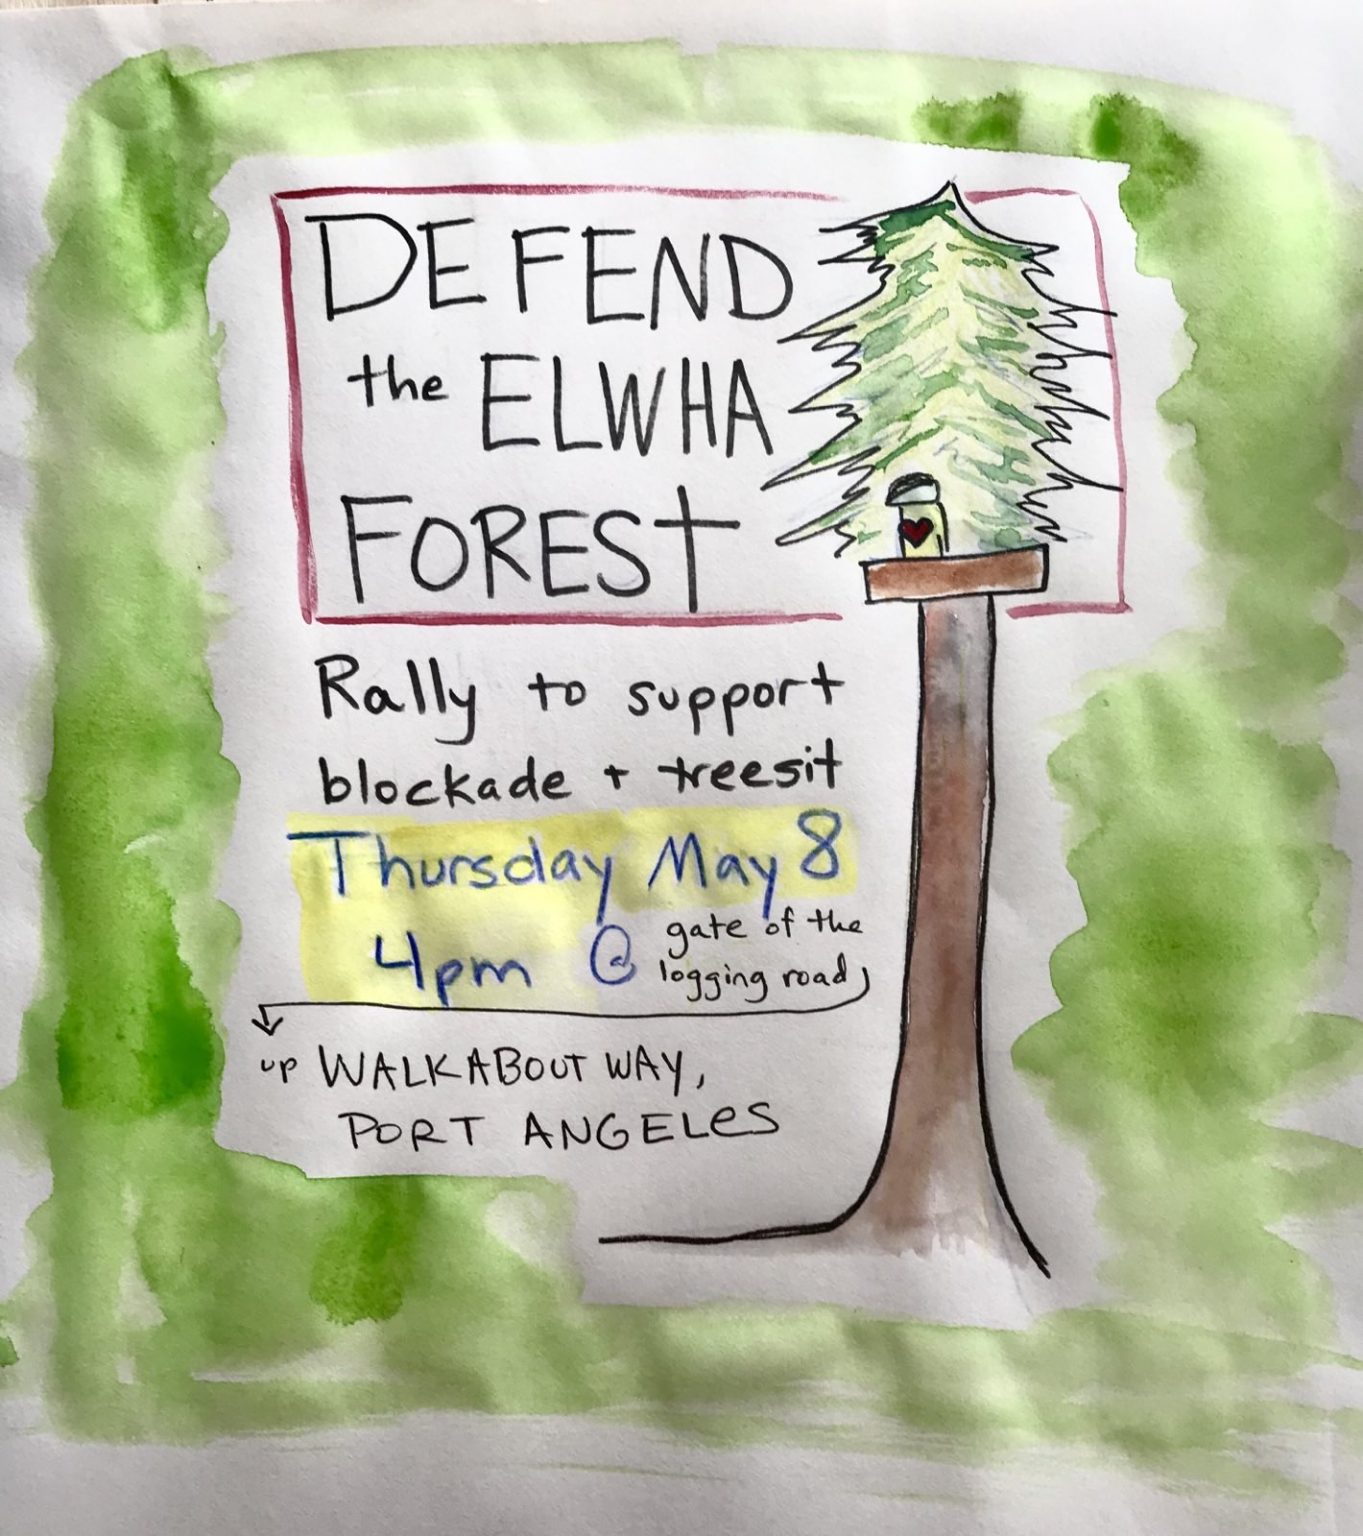 DEFEND
the ELWHA
FOREST
Rally to support
blockade + treesit
Thursday May 8
4pm @ gate of the
logging road
up WALKABOUT WAY,
PORT ANGELES